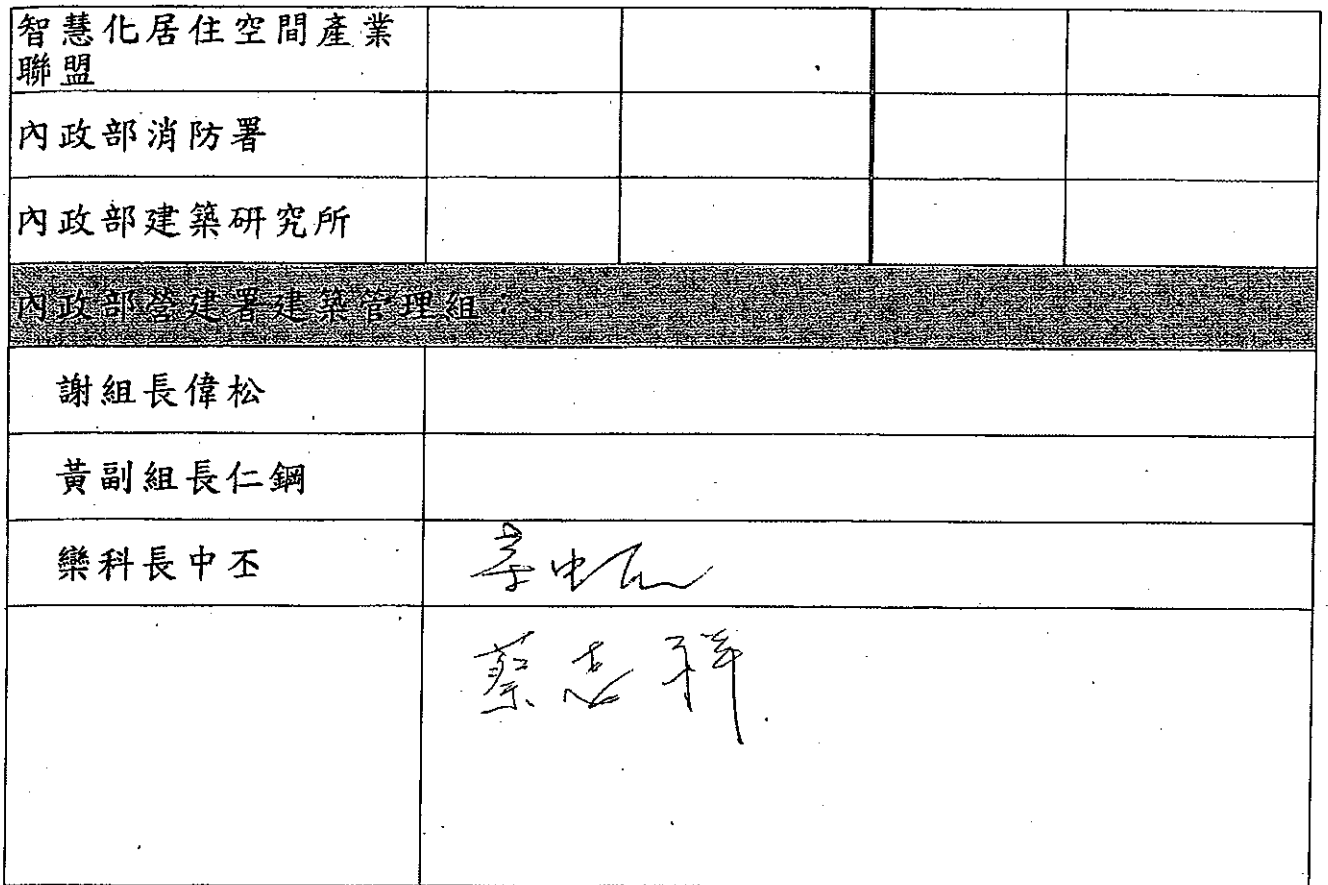 智慧化居住空間產業
聯盟
內政部消防署
內政部建築研究所
內政部營建署建築管理組：
謝組長偉松
黃副組長仁鋼
欒科長中丕
蔡志祥